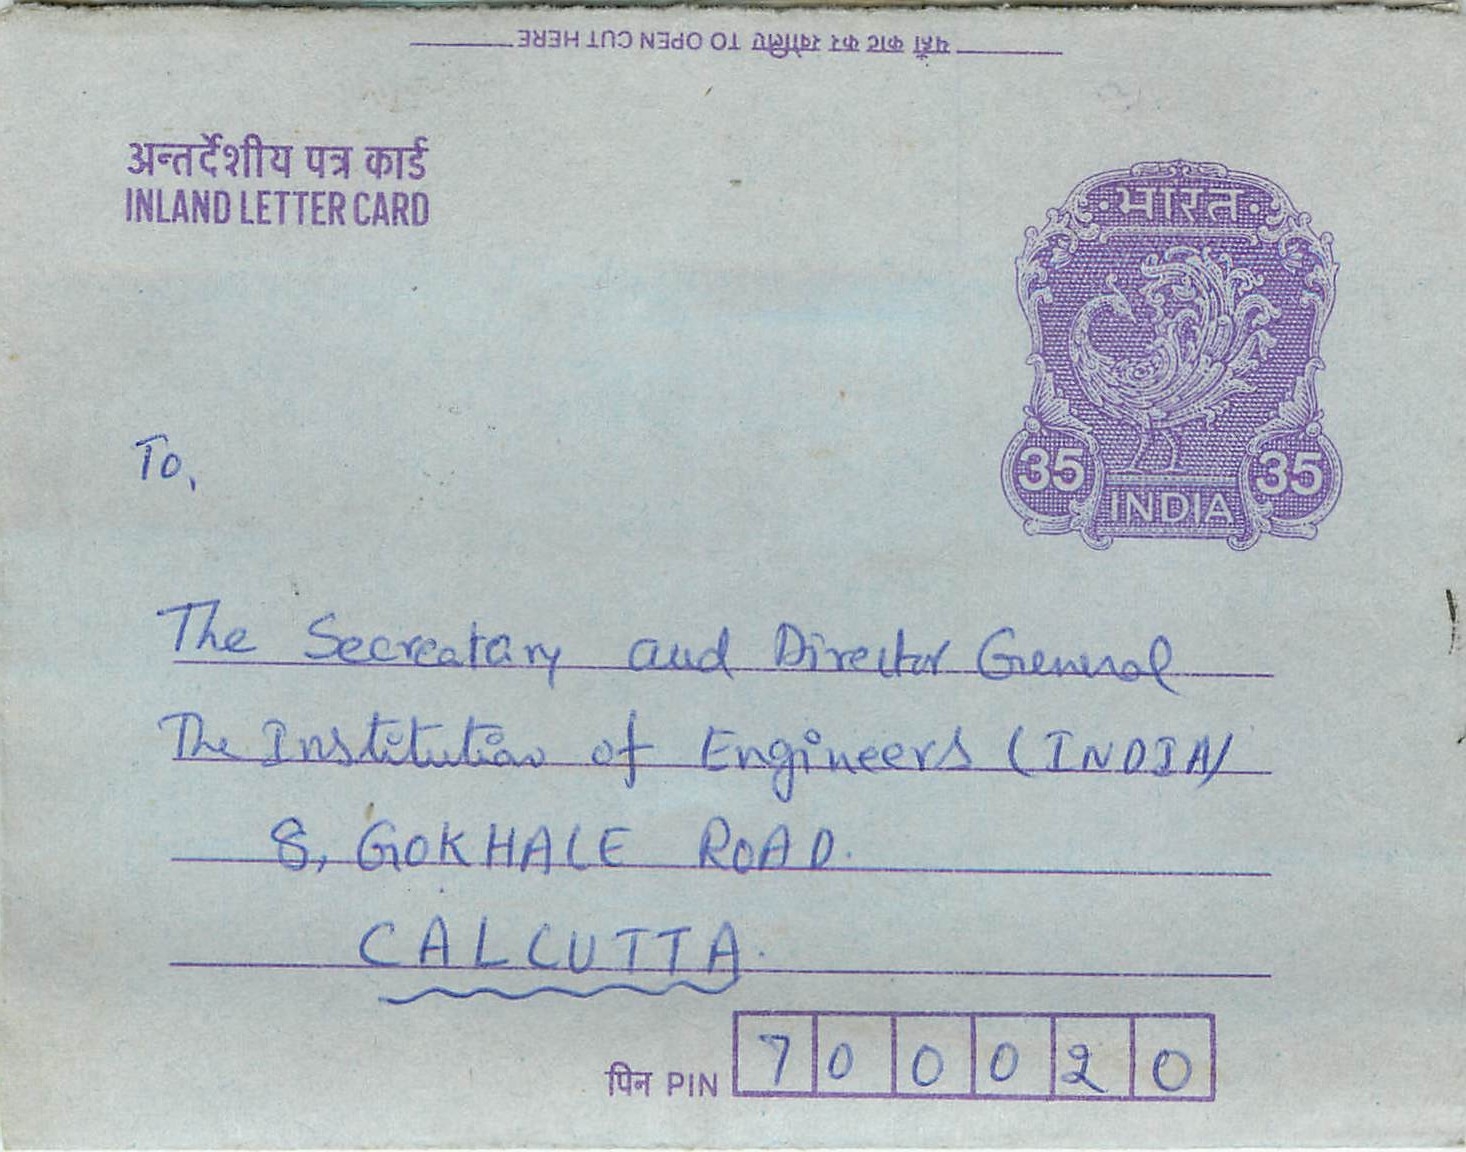 यहाँ काट कर खोलिए TO OPEN CUT HERE
अन्तर्देशीय पत्र कार्ड
INLAND LETTER CARD
भारत
35 35
INDIA
To,
The Secreatary and Director General
The Institution of Engineers (INDIA)
8, GOKHALE ROAD.
CALCUTTA.
पिन PIN 700020